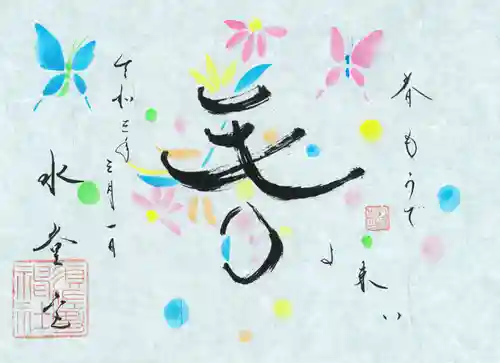 春もうで
春
よ来い
令和三年三月一日
水堂宮